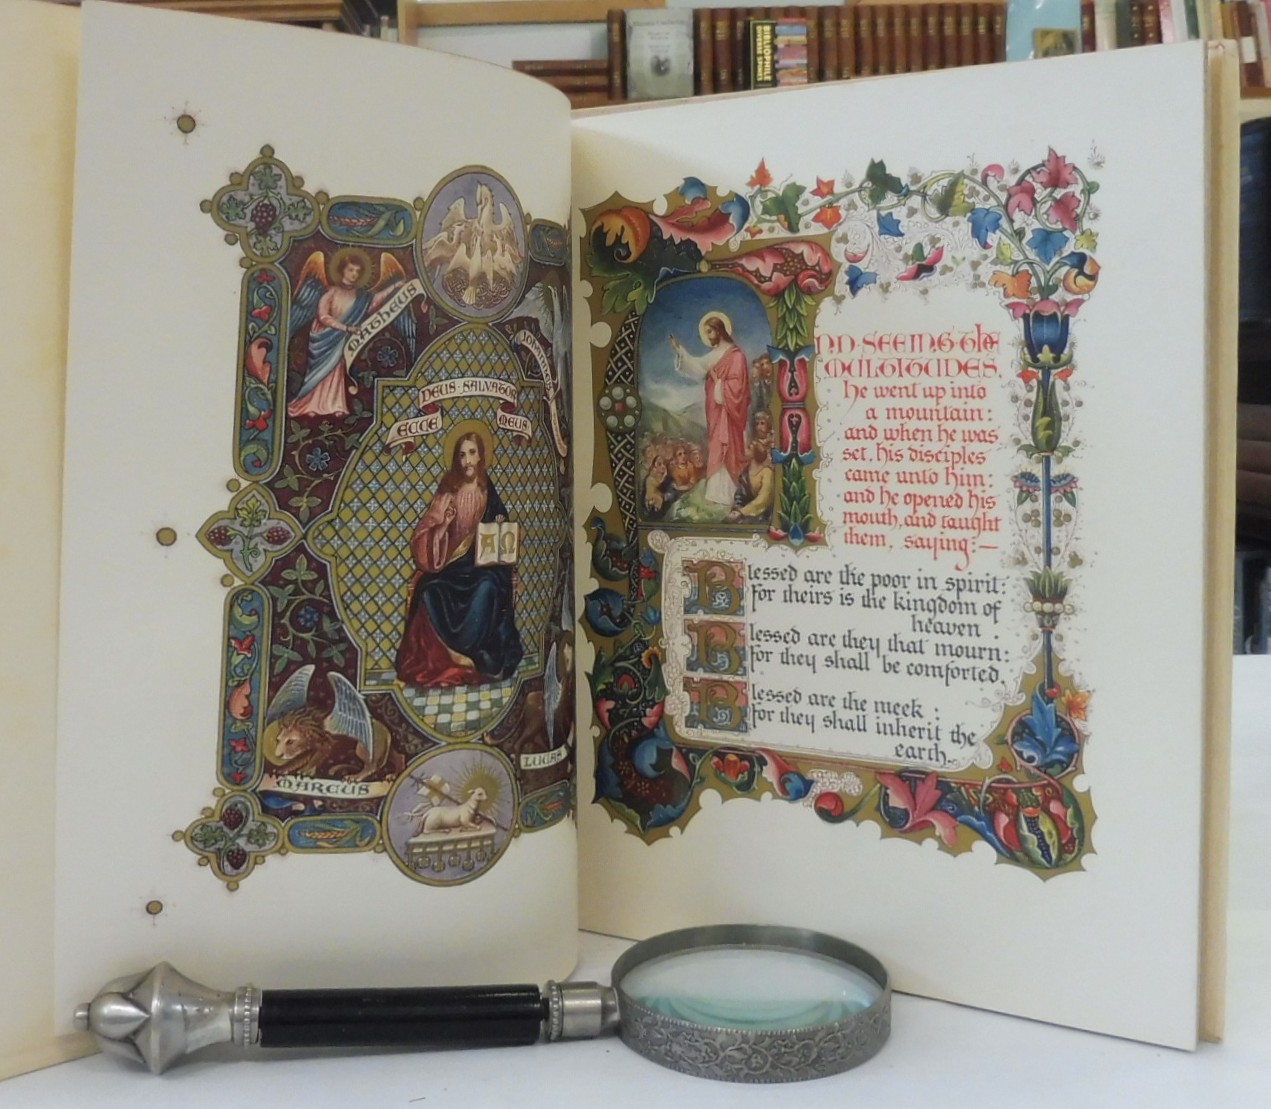 BIBLIOPHILE
MATHEUS
JOHANNES
DEUS·SALVATOR
ECCE
MEUS
A Ω
MARCUS
LUCAS
AND SEEING the
MULTITUDES,
he went up into
a mountain:
and when he was
set, his disciples
came unto him:
and he opened his
mouth, and taught
them, saying;—
Blessed are the poor in spirit:
for theirs is the kingdom of
heaven.
Blessed are they that mourn:
for they shall be comforted.
Blessed are the meek:
for they shall inherit the
earth.